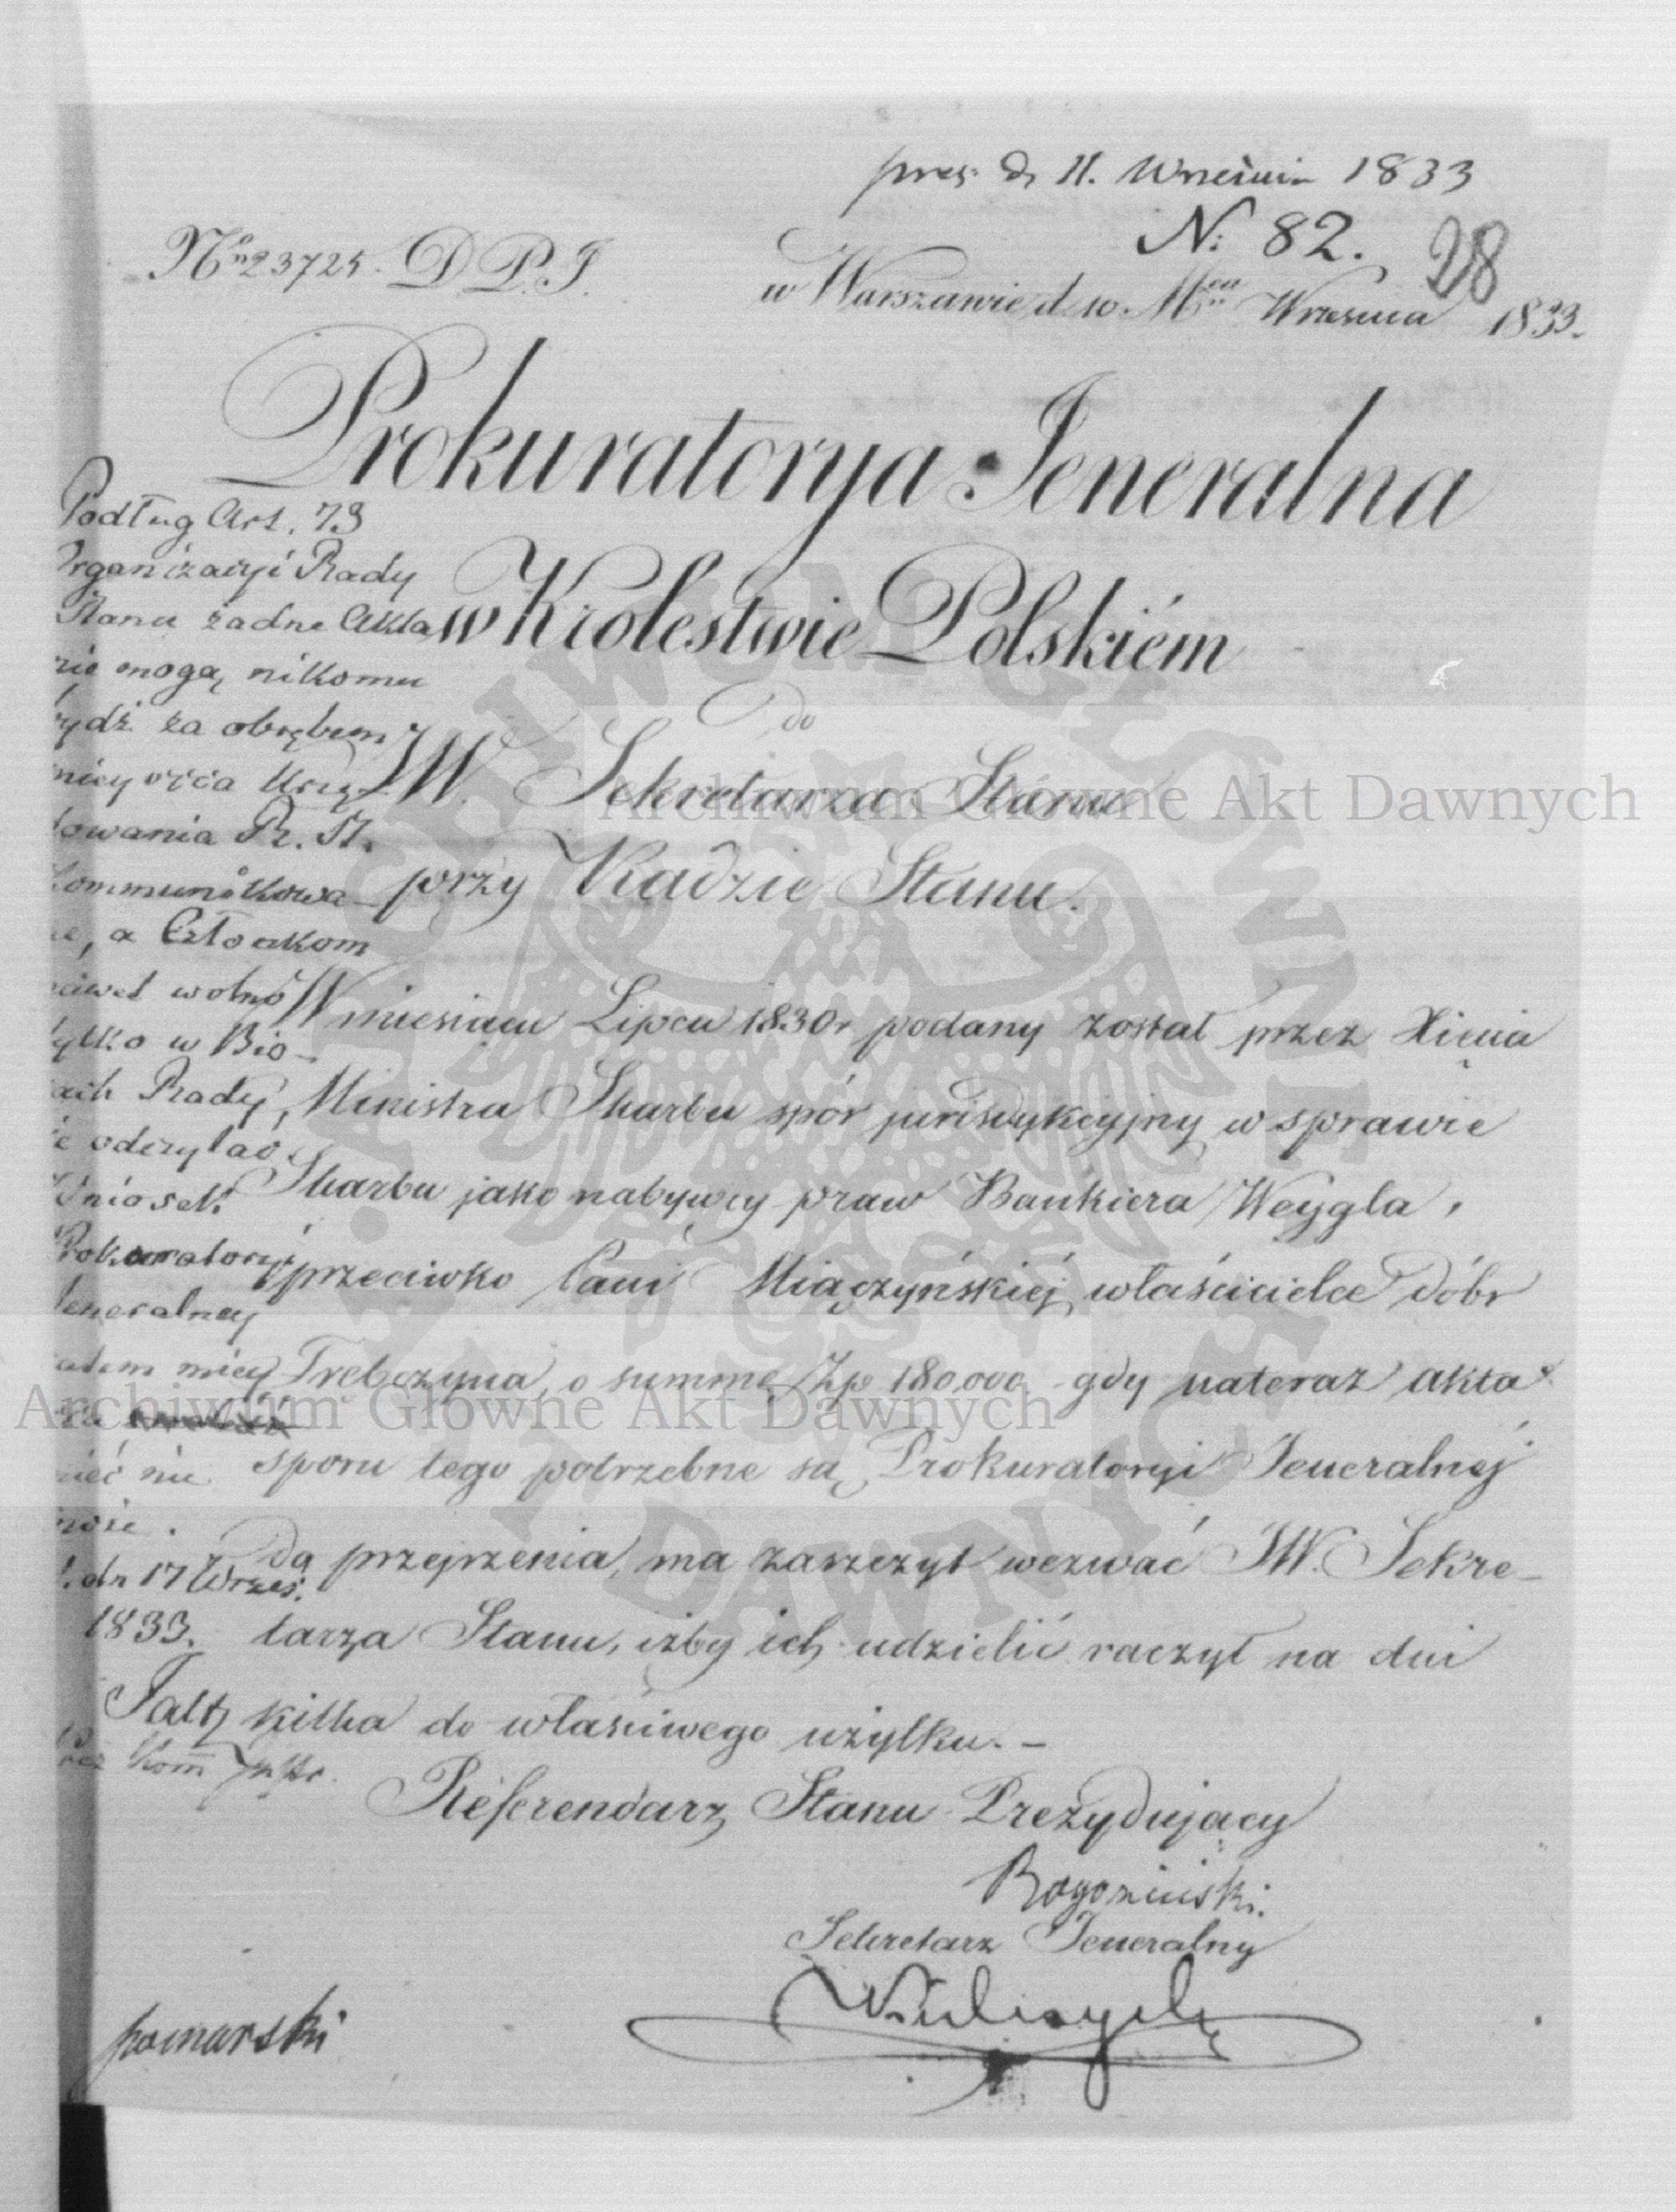 pres: d. 11. Września 1833
N. 82.
28
No 23725. D.P.J.
w Warszawie d. 10. Mca Września 1833.
Prokuratorya Jeneralna
w Krolestwie Polskiém
do
JW. Sekretarza Stanu
przy Radzie Stanu.
W miesiącu Lipcu 1830r podany został przez Xięcia
Ministra Skarbu spór jurisdykcyjny w sprawie
Skarbu jako nabywcy praw Bankiera Weygla,
przeciwko Pani Miączyńskiéj, właścicielce dóbr
Trebczyna, o summę Złp 180,000 gdy nateraz akta
sporu tego potrzebne są Prokuratoryi Jeneralnej
do przejrzenia, ma zaszczyt wezwać JW. Sekre-
tarza Stanu, iżby ich udzielić raczył na dni
kilka do właściwego użytku. -
Referendarz Stanu Prezydujący
Rogoziński.
Sekretarz Jeneralny
Podług Art. 73
Organizacyi Rady
Stanu żadne Akta
nie mogą nikomu
bydź za obrębem
miejsca Urzę-
dowania R. St.
kommunikowa-
ne, a Członkom
nawet wolno
tylko w Bió-
rach Rady
je odczytać
Wniosek
Prokuratoryi
Jeneralney
zatem miey
mieć nie
może.
d. 17 Wrześ.
1833.
Archiwum Główne Akt Dawnych
Archiwum Główne Akt Dawnych
ARCHIWUM GŁÓWNE AKT DAWNYCH